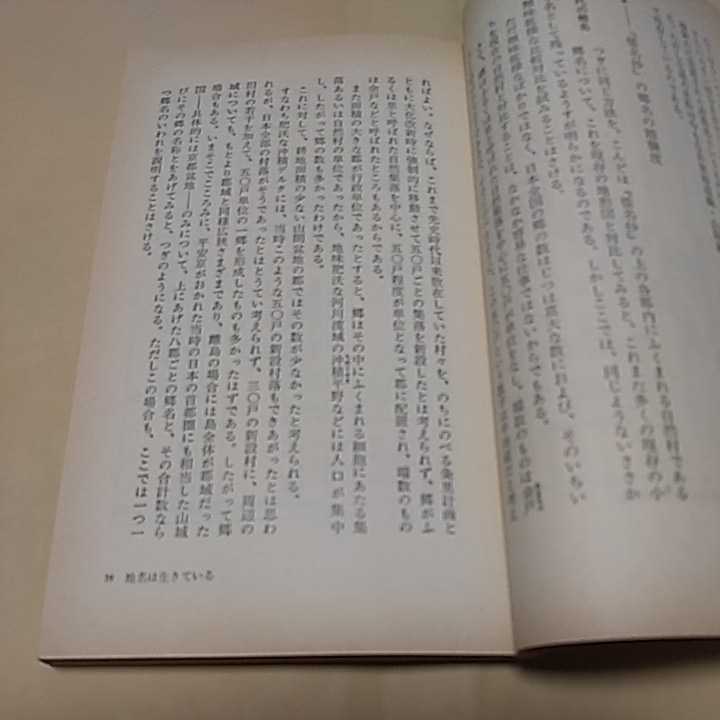 つぎに同じ方法を、こんどは、『倭名抄』の上の各郡内にふくまれる自然村である
郷名について、これを現存の地形図と対比してみると、これまた多くの現存の小
名として残っているようすが明らかになるのである。しかしここでは、同じようないささか
な比較対比を試みることはさける。
ただ興味索漠なばかりではなく、日本全国の郷の数はじつは莫大な数におよび、そのいちい
することは、なかなか容易な仕事ではないからでもある。
ればよい。なぜならば、これまで先史時代以来散在していた村々を、のちにのべる条里計画と
ともに大化改新時に強制的に移動させて五〇戸ごとの集落を新設したとは考えられず、郷がふ
るくは里と呼ばれた自然集落を中心に、五〇戸程度が単位となって郡に配置され、端数のもの
は余戸などと呼ばれたところもあるからである。
また面積の大きな郷が行政単位であったとすると、郷はその中にふくまれる細胞にあたる集
落あるいは自然村の単位であったから、地味肥沃な河川流域の沖積平野などには人口が集中
し、したがって郷の数も多かったわけである。
これに対して、耕地面積の少ない山間盆地の郡ではその数が少なかったと考えられる。
すなわち肥沃な沖積デルタには、当時このような五〇戸の新設村落もできあがったとは思わ
れるが、日本全部の村落がそうであったとはとうてい考えられず、三〇戸の新設村に、周辺の
旧村の若干を加えて、五〇戸単位の一郷を形成したものも多かったはずである。したがって郷
域についても、もとより郡域と同様広狭さまざまであり、離島の場合には島全体が郡域だった
場合もある。いまそこでこころみに、平安京がおかれた当時の日本の首都圏にも相当した山城
国――具体的には京都盆地――のみについて、上にあげた八郡ごとの郷名と、その合計数なら
びにその郷の名称とをあげてみると、つぎのようになる。ただしこの場合も、ここでは一つ一
つ郷名のいわれを説明することはさける。
地名は生きている